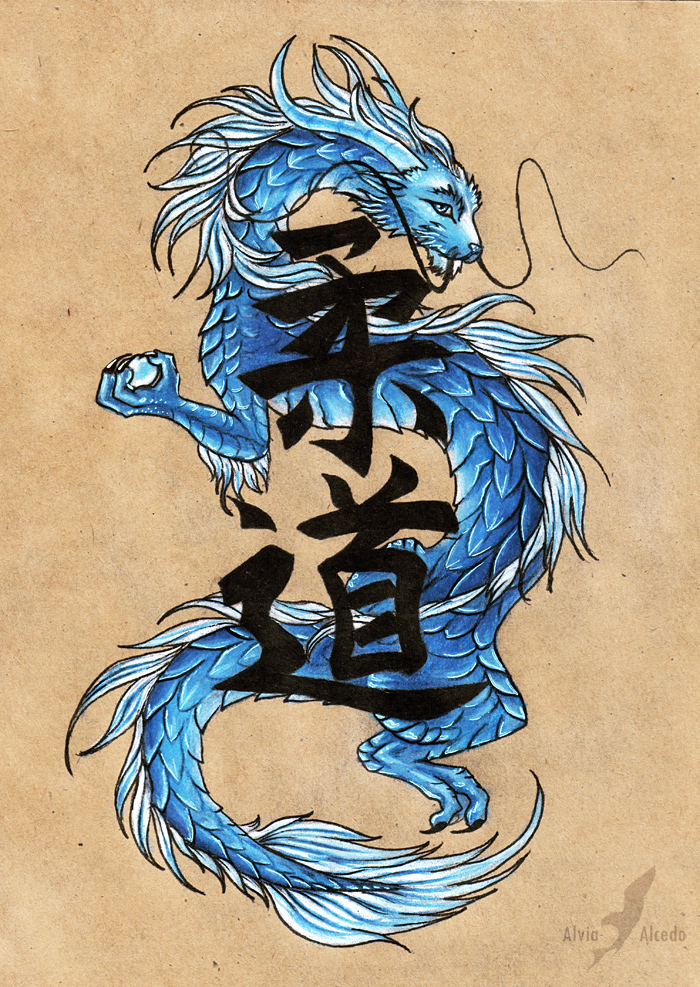 柔道
Alvia Alcedo